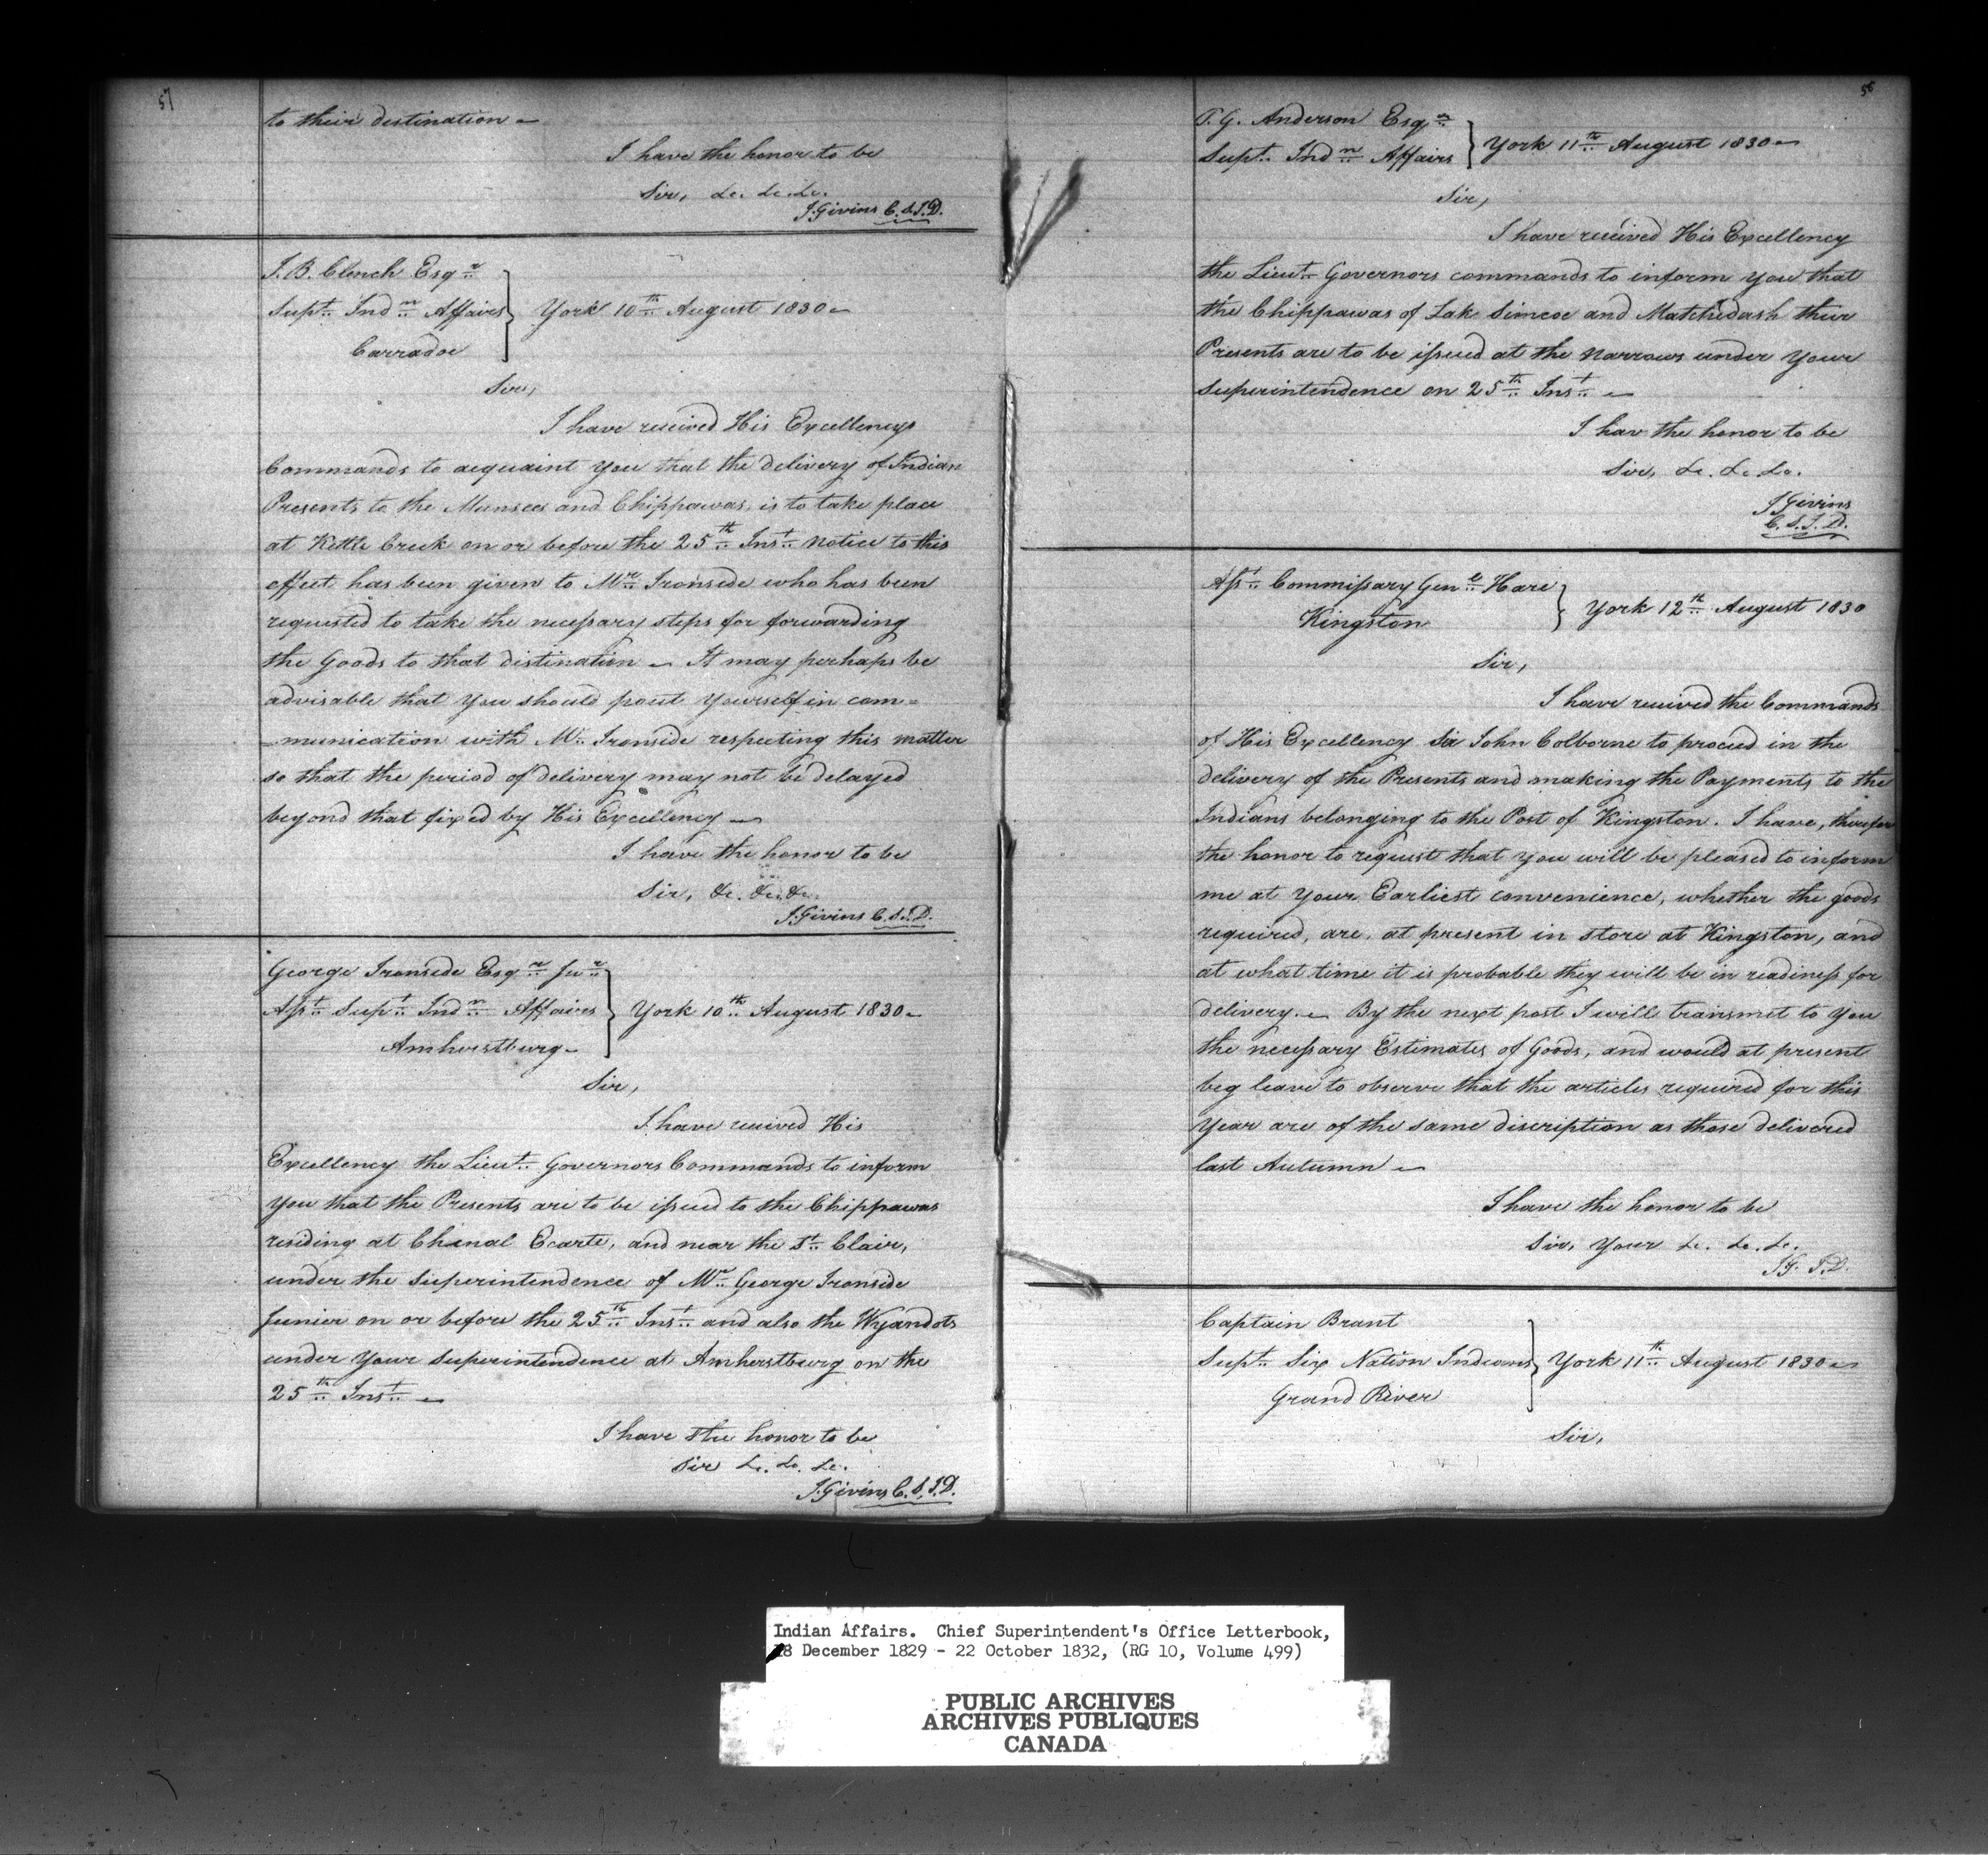 57
to their destination –
I have the honor to be
Sir, &c. &c. &c.
J. Givins C.S.I.D.
J. B. Clench Esqr
Supt Indn Affairs } York 10th August 1830 –
Carradoc
Sir,
I have received His Excellencys
Commands to acquaint you that the delivery of Indian
Presents to the Munsees and Chippawas, is to take place
at Kettle Creek on or before the 25th Inst Notice to this
effect has been given to Mr Ironside who has been
requested to take the necessary steps for forwarding
the Goods to that distination – It may perhaps be
advisable that you should pout yourself in com=
=munication with Mr Ironside respecting this matter
so that the period of delivery may not be delayed
beyond that fixed by His Excellency –
I have the honor to be
Sir, &c. &c. &c.
J. Givins C.S.I.D.
George Ironside Esqr Junr
Asst Supt Indn Affairs } York 10th August 1830 –
Amherstburg –
Sir,
I have received His
Excellency the Lieut Governors Commands to inform
you that the Presents are to be issued to the Chippawas
residing at Chenal Ecarte, and near the St Clair,
under the Superintendence of Mr George Ironside
Junior on or before the 25th Inst and also the Wyandots
under your Superintendence at Amherstburg on the
25th Inst –
I have the honor to be
Sir &c. &c. &c.
J. Givins C.S.I.D.
58
T. G. Anderson Esqr
Supt Indn Affairs } York 11th August 1830 –
Sir,
I have received His Excellency
the Lieut Governors commands to inform you that
the Chippawas of Lak Simcoe and Matchedash their
Presents are to be issued at the Narrows under your
Superintendence on 25th Inst –
I hav the honor to be
Sir, &c. &c. &c.
J Givins
C.S.I.D.
Asst Commissary Genl Hare } York 12th August 1830
Kingston
Sir,
I have received the Commands
of His Excellency Sir John Colborne to proceed in the
delivery of the Presents and making the Payments to the
Indians belonging to the Post of Kingston. I have, therefor
the honor to request that you will be pleased to inform
me at your Earliest convenience, whether the goods
required, are, at present in store at Kingston, and
at what time it is probable they will be in readiness for
delivery. – By the next post I will transmet to you
the necessary Estimates of Goods, and would at present
beg leave to observe that the articles required for this
Year are of the same discription as those delivered
last Autumn –
I have the honor to be
Sir, Your &c. &c. &c.
J.G. I.D.
Captain Brant
Supt Six Nation Indians } York 11th August 1830 –
Grand River
Sir,
Indian Affairs. Chief Superintendent's Office Letterbook,
18 December 1829 - 22 October 1832, (RG 10, Volume 499)
PUBLIC ARCHIVES
ARCHIVES PUBLIQUES
CANADA